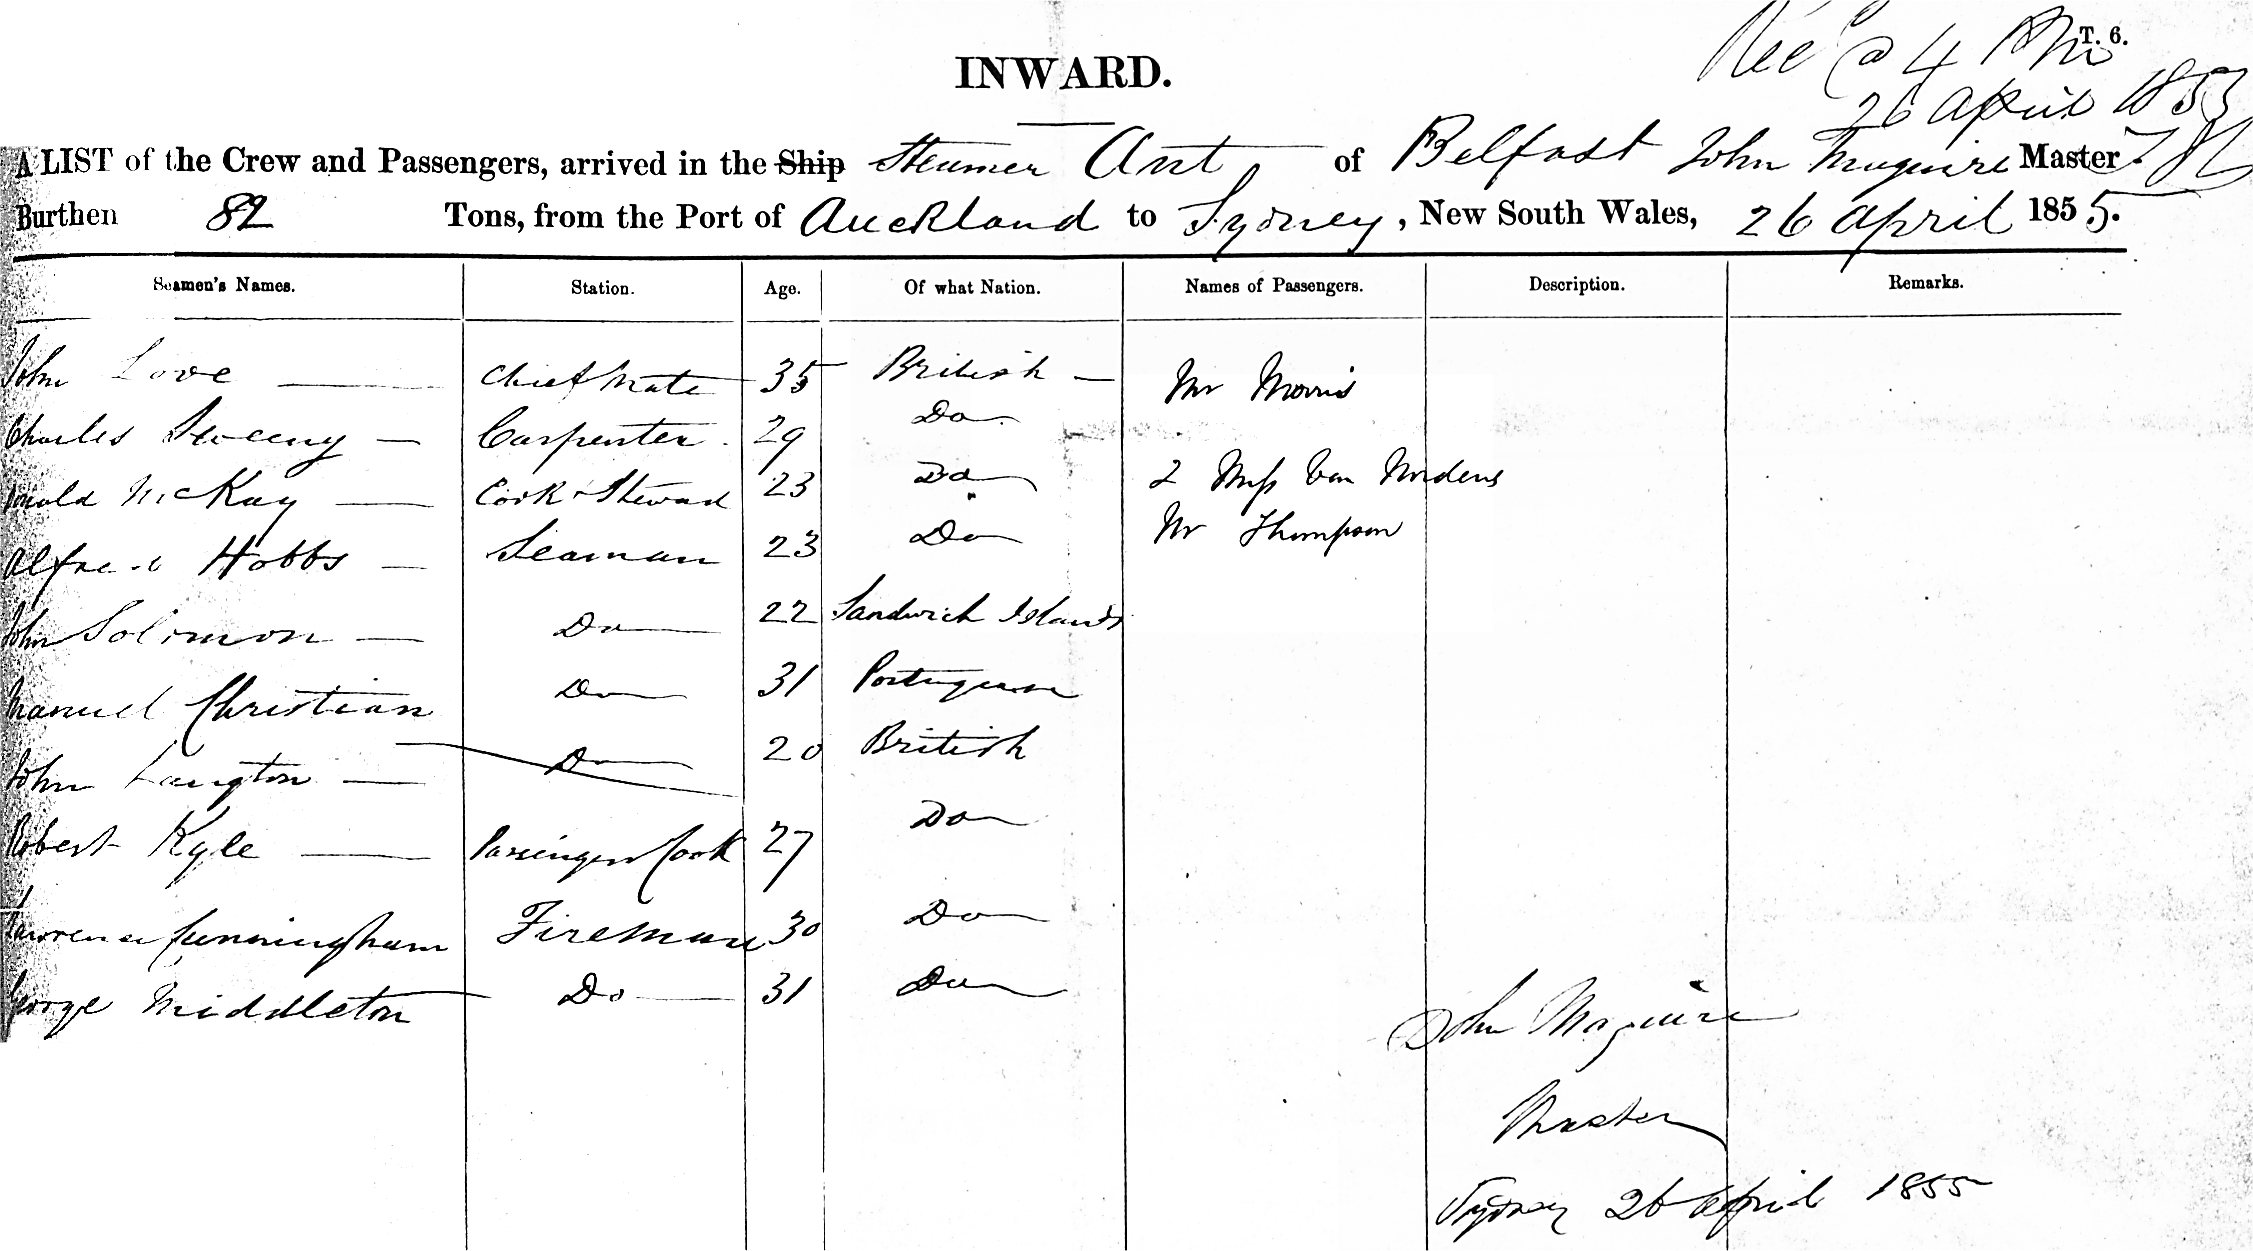 T. 6.
Rec @ 4 PM
26 April 1855
INWARD.
A LIST of the Crew and Passengers, arrived in the Ship Steamer Ant of Belfast John Maguire Master
Burthen 82 Tons, from the Port of Auckland to Sydney, New South Wales, 26 April 1855.
Seamen's Names. Station. Age. Of what Nation. Names of Passengers. Description. Remarks.
John Love Chief Mate 35 British Mr Morris
Charles Sweeny Carpenter 29 Do
Donald McKay Cook & Steward 23 Do 2 Miss Van Nordens
Alfred Hobbs Seaman 23 Do Mr Thompson
John Solomon Do 22 Sandwich Islands
Manuel Christian Do 31 Portuguese
John Langton Do 20 British
Robert Kyle Passenger Cook 27 Do
Lawrence Cunningham Fireman 30 Do
George Middleton Do 31 Do
John Maguire
Master
Sydney 26 April 1855